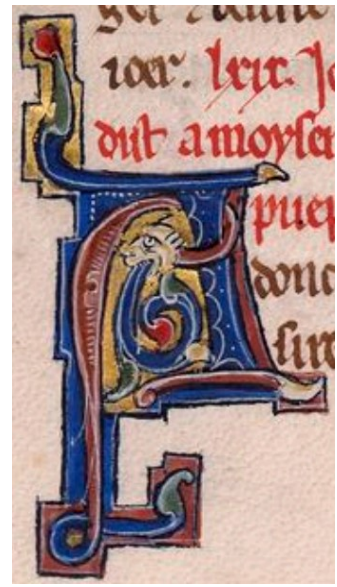 ioer. lxix. Jo
dist a moysen
A puep
donc
sire